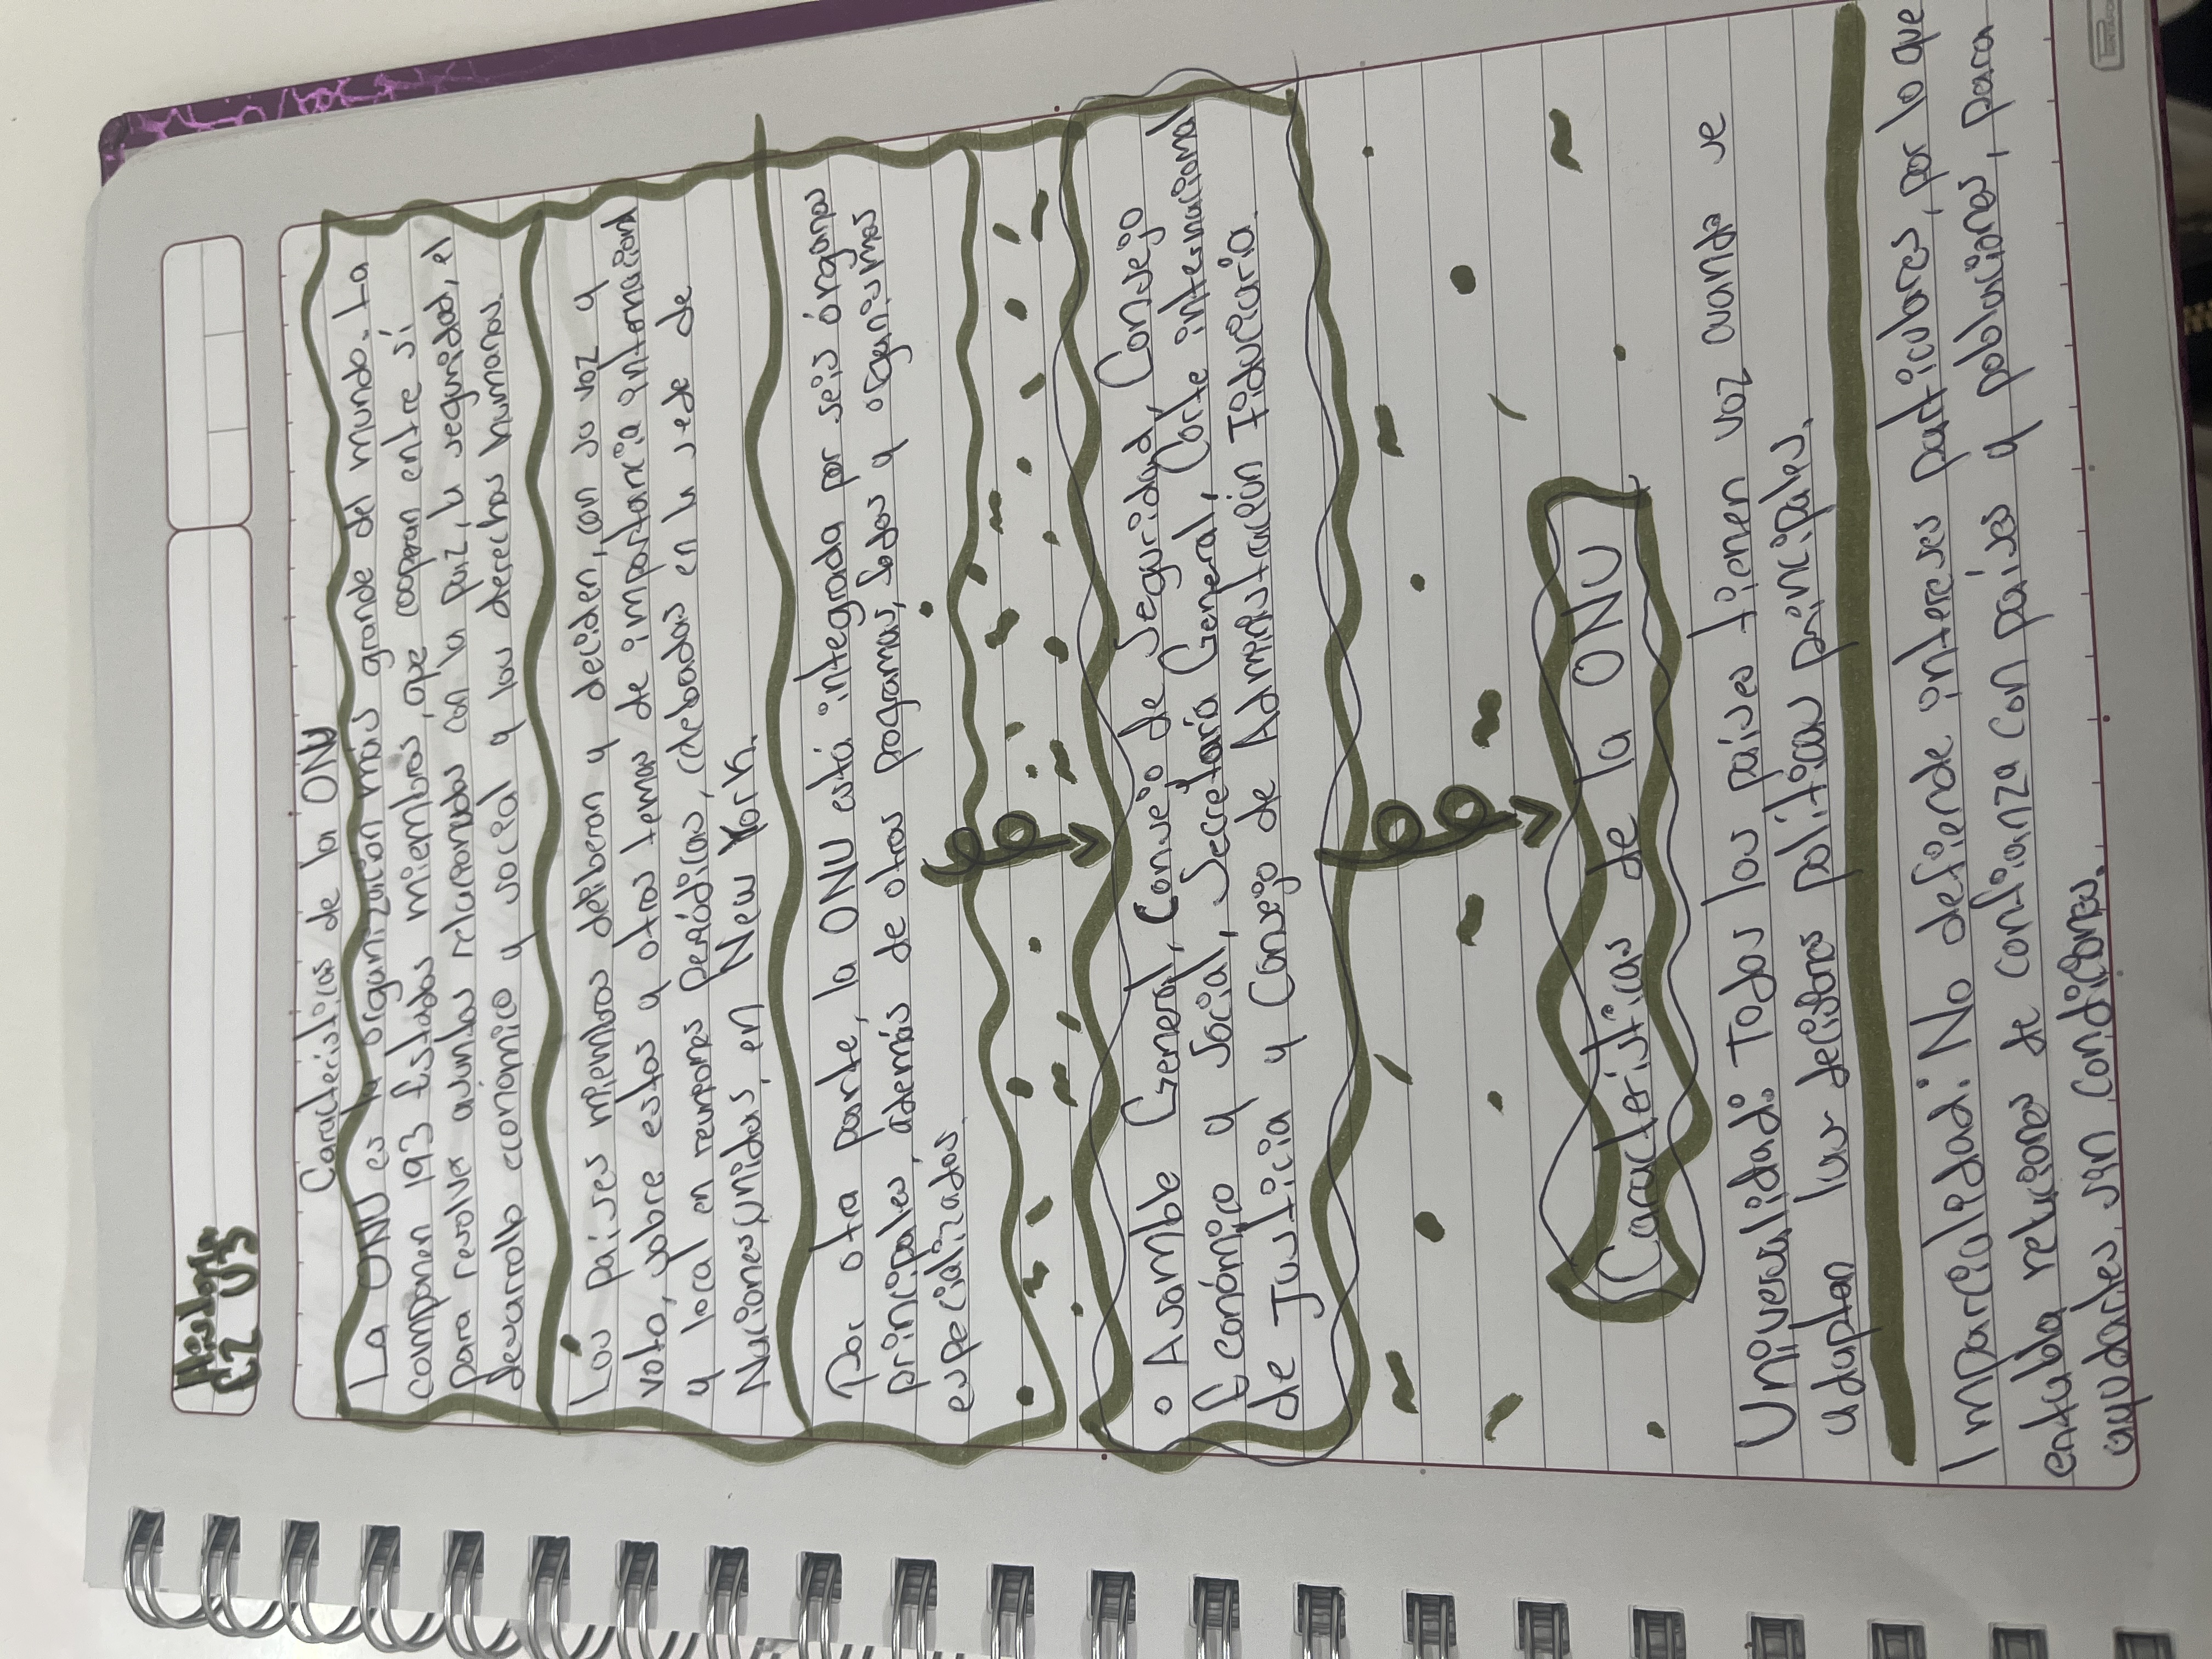 Características de la ONU
La ONU es la organización más grande del mundo. La
componen 193 Estados miembros, que cooperan entre sí
para resolver asuntos relacionados con la paz, la seguridad, el
desarrollo económico y social y los derechos humanos.
Los países miembros deliberan y deciden, con su voz y
voto, sobre estos y otros temas de importancia internacional
y local en reuniones periódicas, celebadas en la sede de
Naciones Unidas, en New York.
Por otra parte, la ONU está integrada por seis órganos
principales, además de otros pogramas, fodos y organismos
especializados.
o Asamble General, Consejo de Seguridad, Consejo
Económico y Social, Secretaría General, Corte internacional
de Justicia y Consejo de Administración Fiduciaria.
Características de la ONU
Universalidad: Todos los países tienen voz cuando se
adoptan las decisiones políticas principales.
Imparcialidad: No defiende intereses particulares, por lo que
entabla relaciones de confianza con países y poblaciones, para
ayudarles sin condiciones.